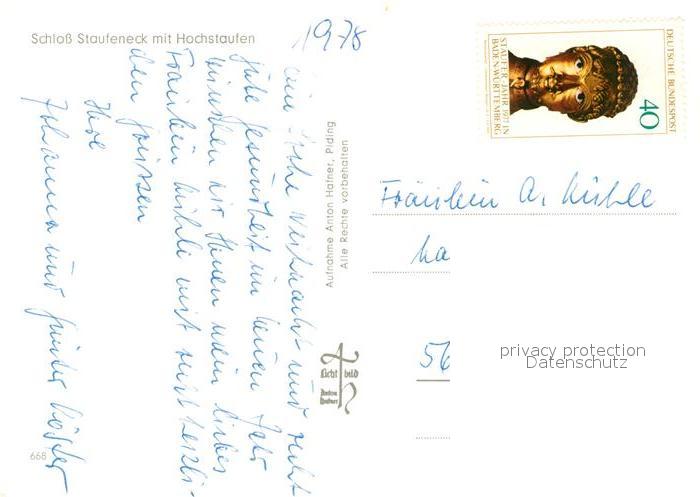 Schloß Staufeneck mit Hochstaufen
1978
ein frohe Weihnacht und recht
gute Gesundheit im neuen Jahr
wünschen wir Ihnen mein liebes
Fräulein Kühle mit recht herzli-
chen Grüssen
Ihre
Johanna und Günter
668
Aufnahme Anton Hafner, Piding
Alle Rechte vorbehalten
Licht bild
Anton Hafner
DEUTSCHE BUNDESPOST
40
STAUFER-JAHR 1977 IN
BADEN-WÜRTTEMBERG
Fräulein A. Kühle
56
privacy protection
Datenschutz